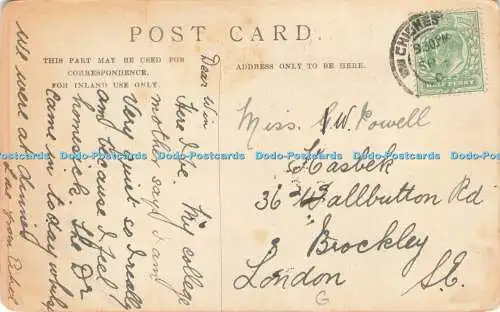 POST CARD.
THIS PART MAY BE USED FOR
CORRESPONDENCE.
FOR INLAND USE ONLY.
ADDRESS ONLY TO BE HERE.
HALF PENNY
Dear Win
Here I be. My college
mother says I am
very quiet so I really
am because I feel
homesick. The Dr
came in to day while
we were at dinner
Love from
Miss. W. Powell
Kasbek
36 Wallbutton Rd
Brockley
London S.E.
G
Dodo-Postcards Dodo-Postcards Dodo-Postcards Dodo-Postcards Dodo-Postcards